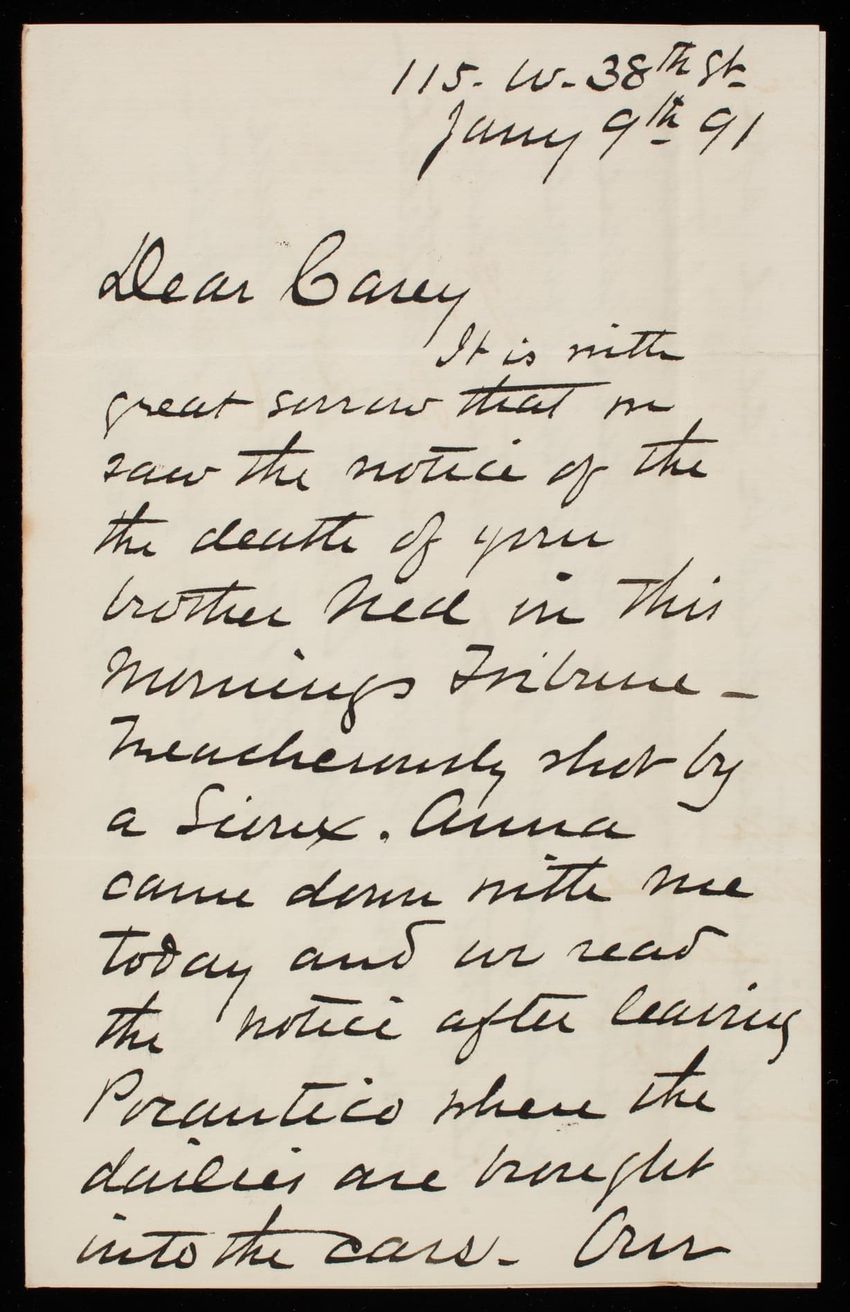 115. W. 38th St
Jany 9th 91
Dear Casey
It is with
great sorrow that we
saw the notice of the
the death of your
brother Ned in this
mornings Tribune –
Treacherously shot by
a Sioux. Anna
came down with me
today and we read
the notice after leaving
Pocantico where the
dailies are brought
into the cars – Our